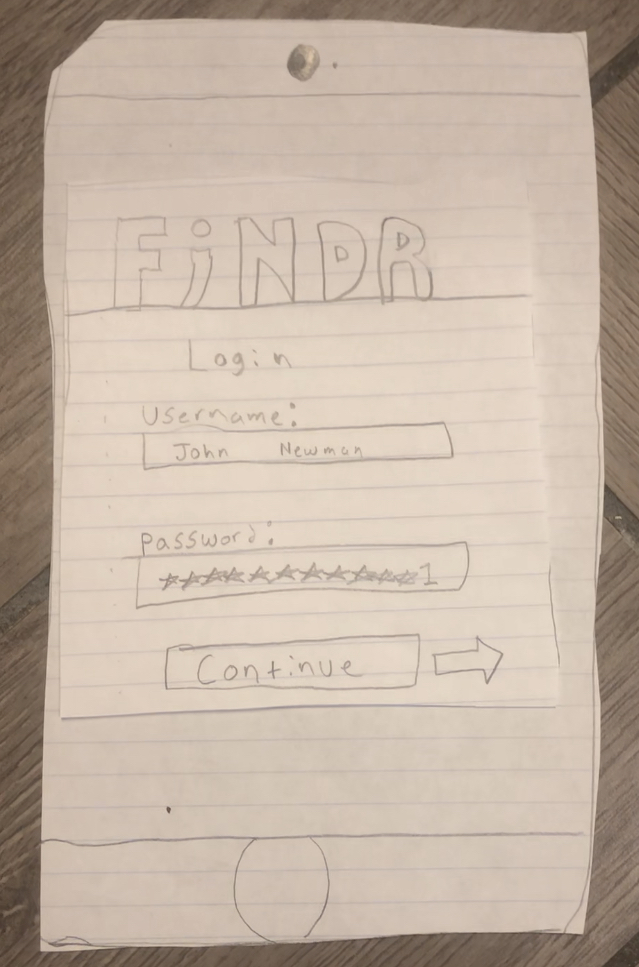 FiNDR
Login
Username:
John Newman
password:
************1
Continue